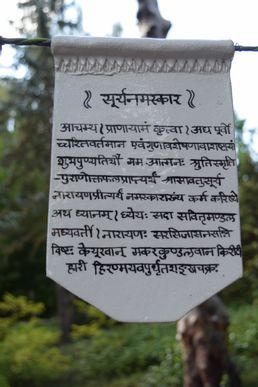 ॥ सूर्यनमस्कार ॥
आचम्य । प्राणायामं कृत्वा । अद्य पूर्वो
च्चरितवर्तमान एवंगुणविशेषणविशिष्टायां
शुभपुण्यतिथौ मम आत्मनः श्रुतिस्मृति
-पुराणोक्तफलप्राप्त्यर्थं श्रीसवितृसूर्य
नारायणप्रीत्यर्थं नमस्काराख्यं कर्म करिष्ये
अथ ध्यानम् । ध्येयः सदा सवितृमण्डल
मध्यवर्ती । नारायणः सरसिजासनसन्नि
विष्टः केयूरवान् मकरकुण्डलवान किरीटी
हारी हिरण्मयवपुर्धृतशङ्खचक्रः